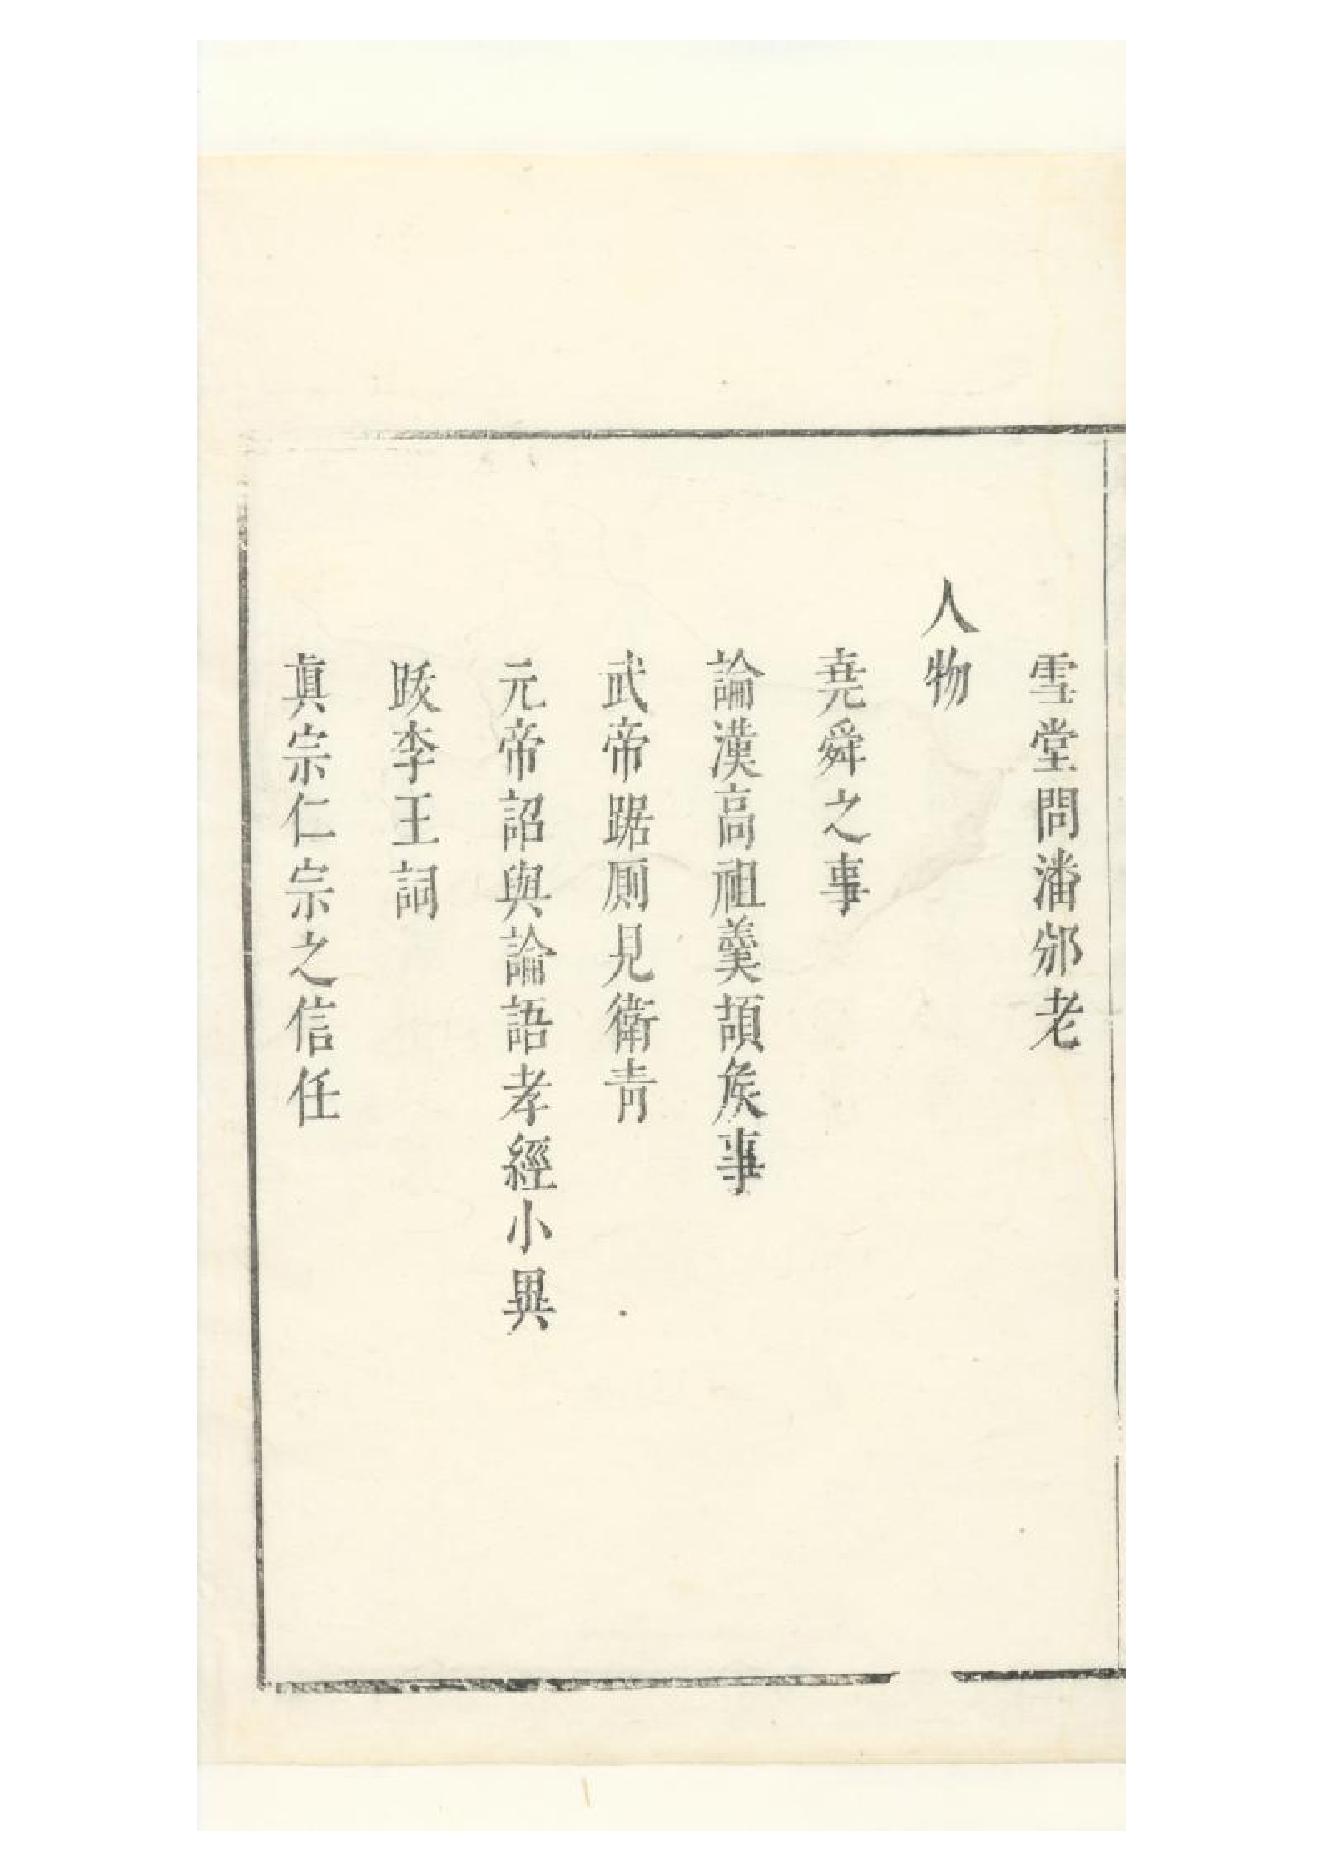 雪堂問潘邠老
人物
堯舜之事
論漢高祖羹頡侯事
武帝踞厠見衛青
元帝詔與論語孝經小異
跋李王詞
眞宗仁宗之信任